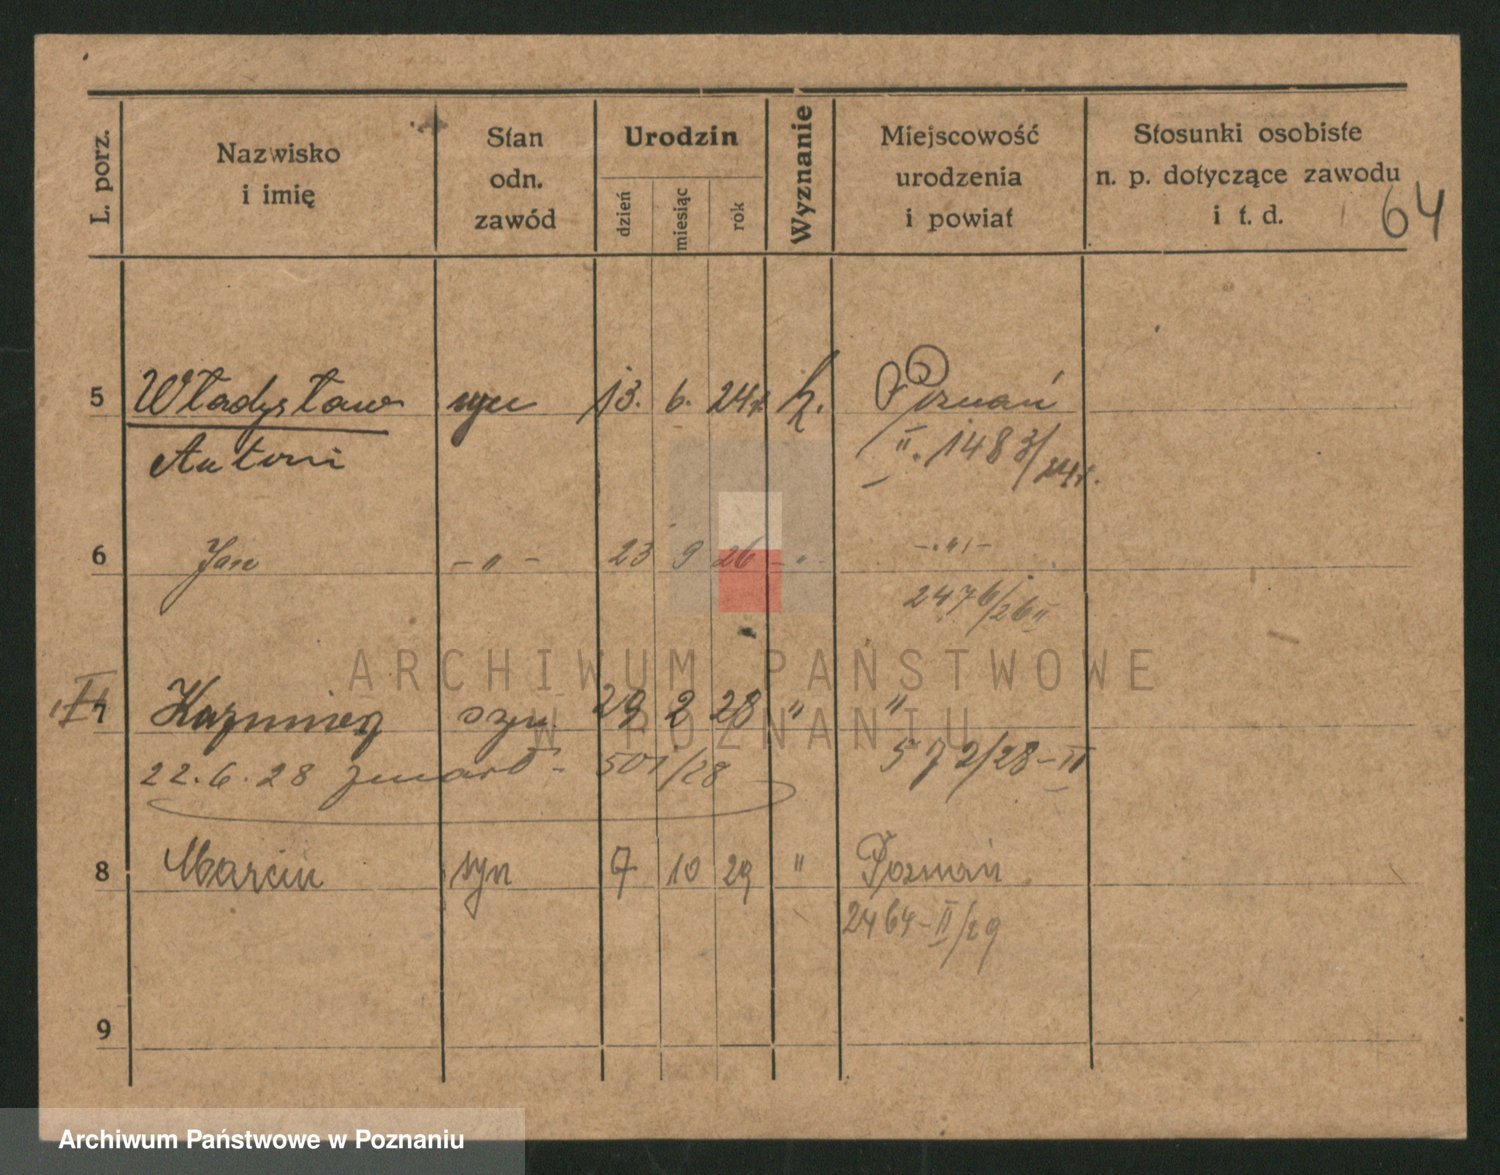 L. porz.
Nazwisko
i imię
Stan
odn.
zawód
Urodzin
dzień
miesiąc
rok
Wyznanie
Miejscowość
urodzenia
i powiat
Stosunki osobiste
n. p. dotyczące zawodu
i t. d.
64
5 Władysław syn 13. 6. 24r k. Poznań
Antoni II. 1483/24r.
6 Jan - " - 23 9 26 - " - - " -
2476/26 II
ARCHIWUM PAŃSTWOWE
W POZNANIU
7 Kazimierz syn 29 2 28 " "
22.6.28 zmarł - 501/28 572/28-II
8 Marcin syn 7 10 29 " Poznań
2464-II/29
9
Archiwum Państwowe w Poznaniu